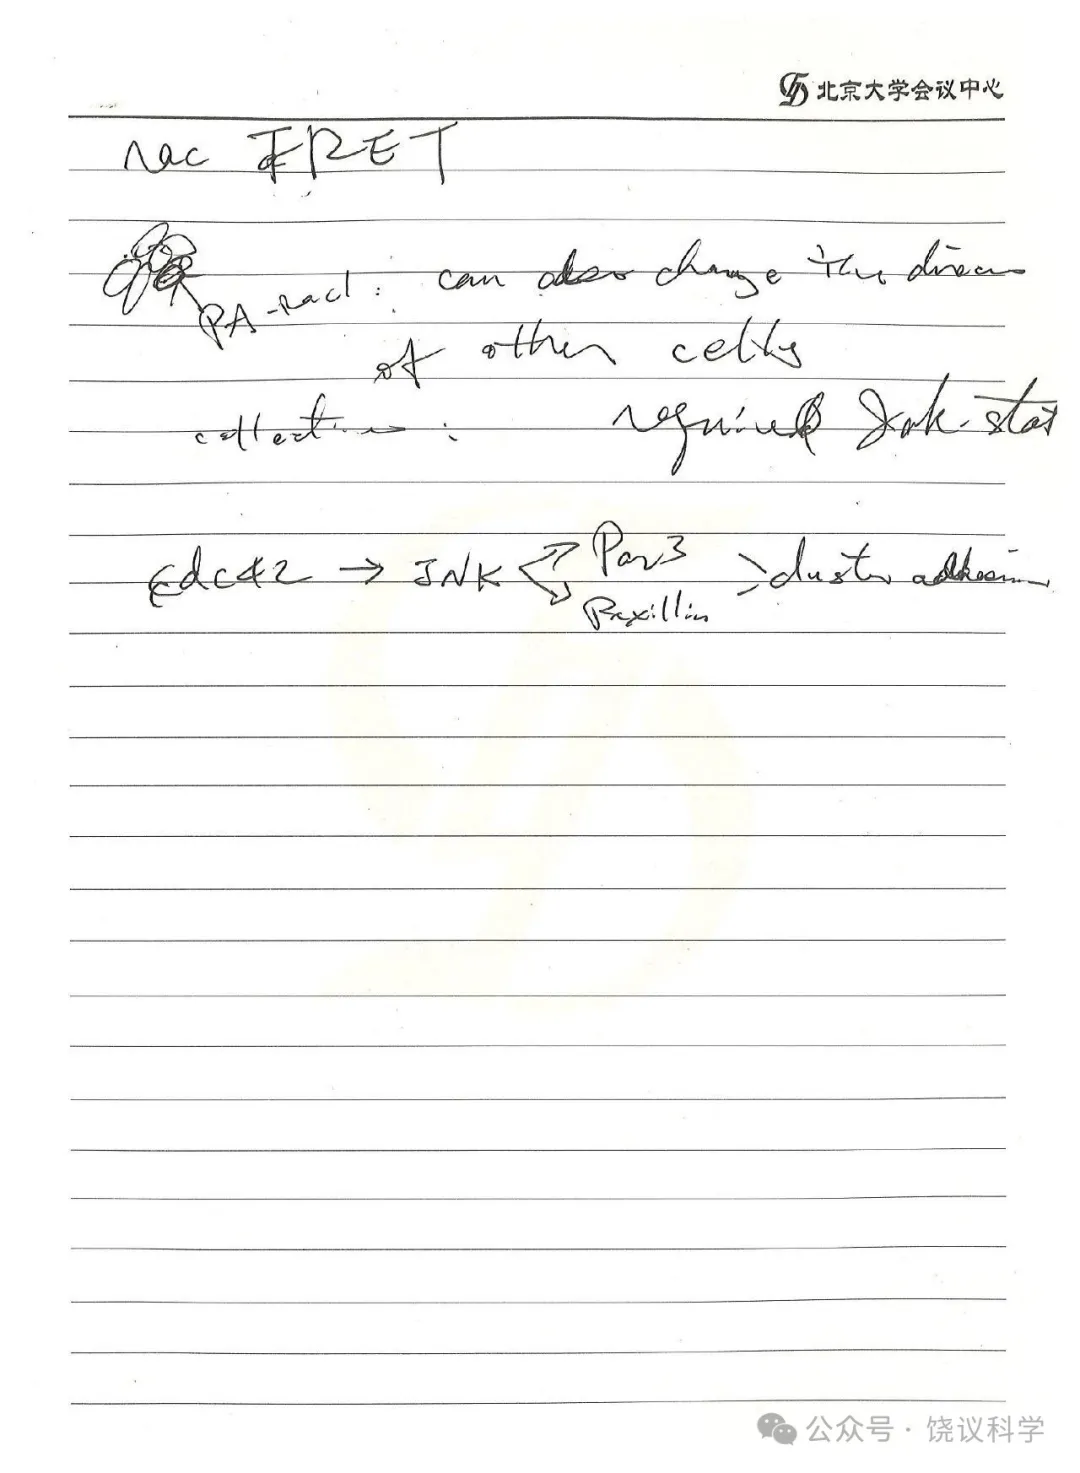 北京大学会议中心
rac FRET
PA-rac1: can also change the direc
of other cells
collection: required Jak-stat
cdc42 → JNK Par3
Paxillin
cluster adhesion
公众号·饶议科学